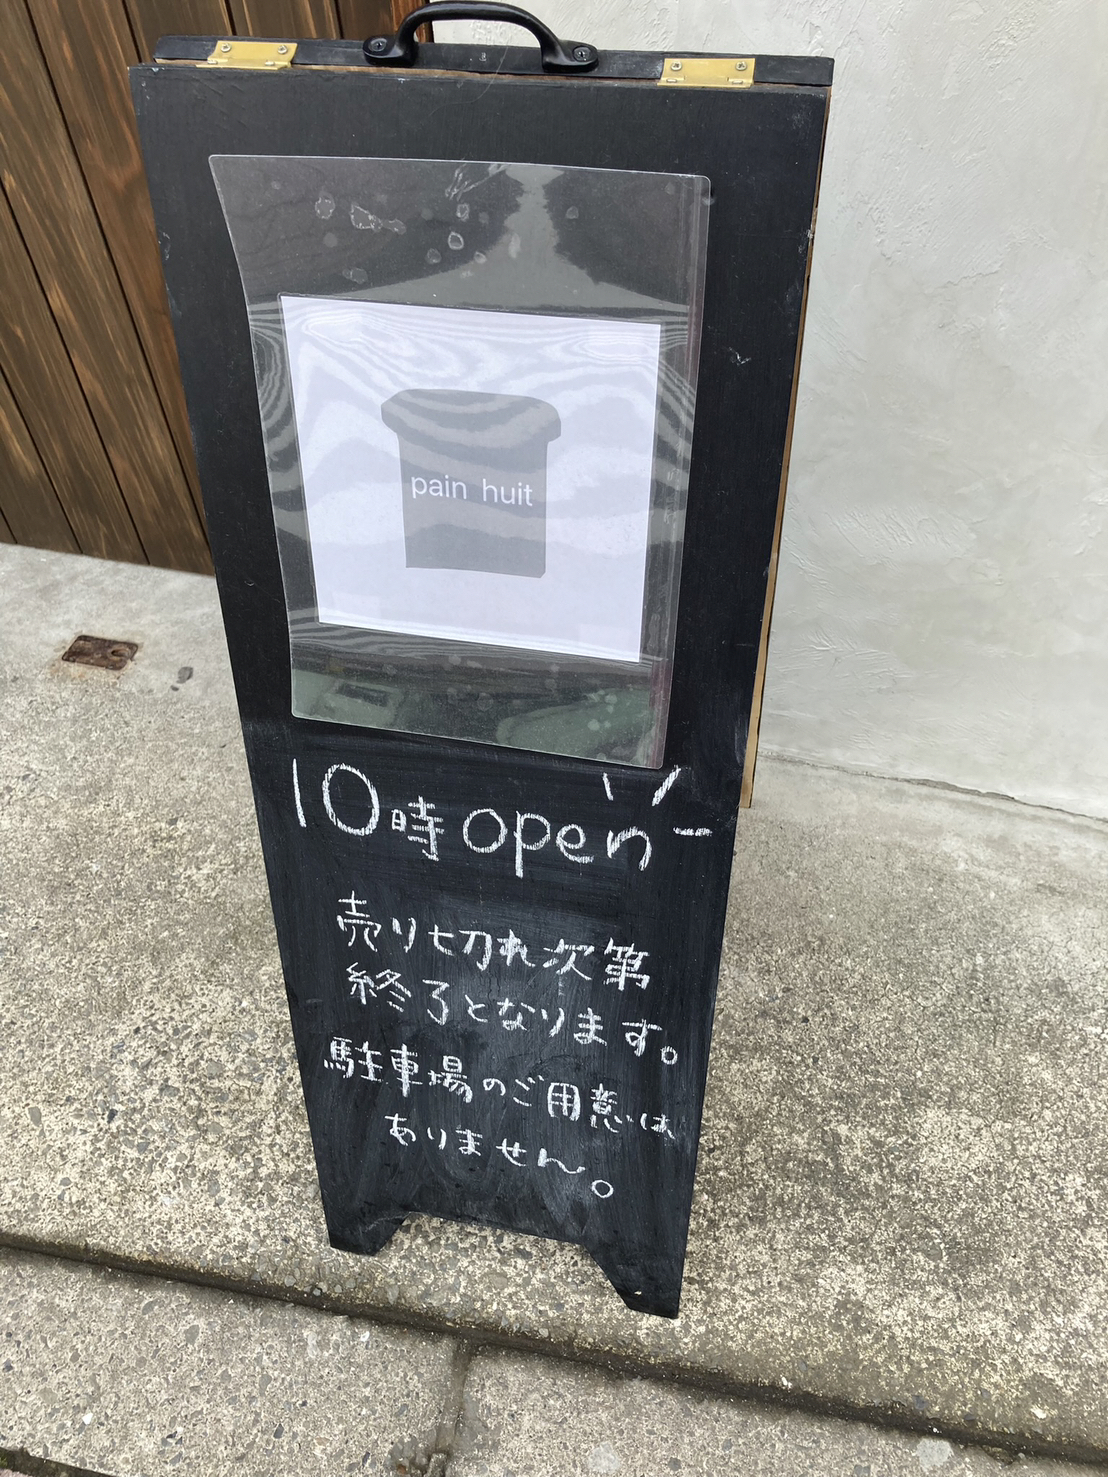 pain huit
10時open
売り切れ次第
終了となります。
駐車場のご用意は
ありません。